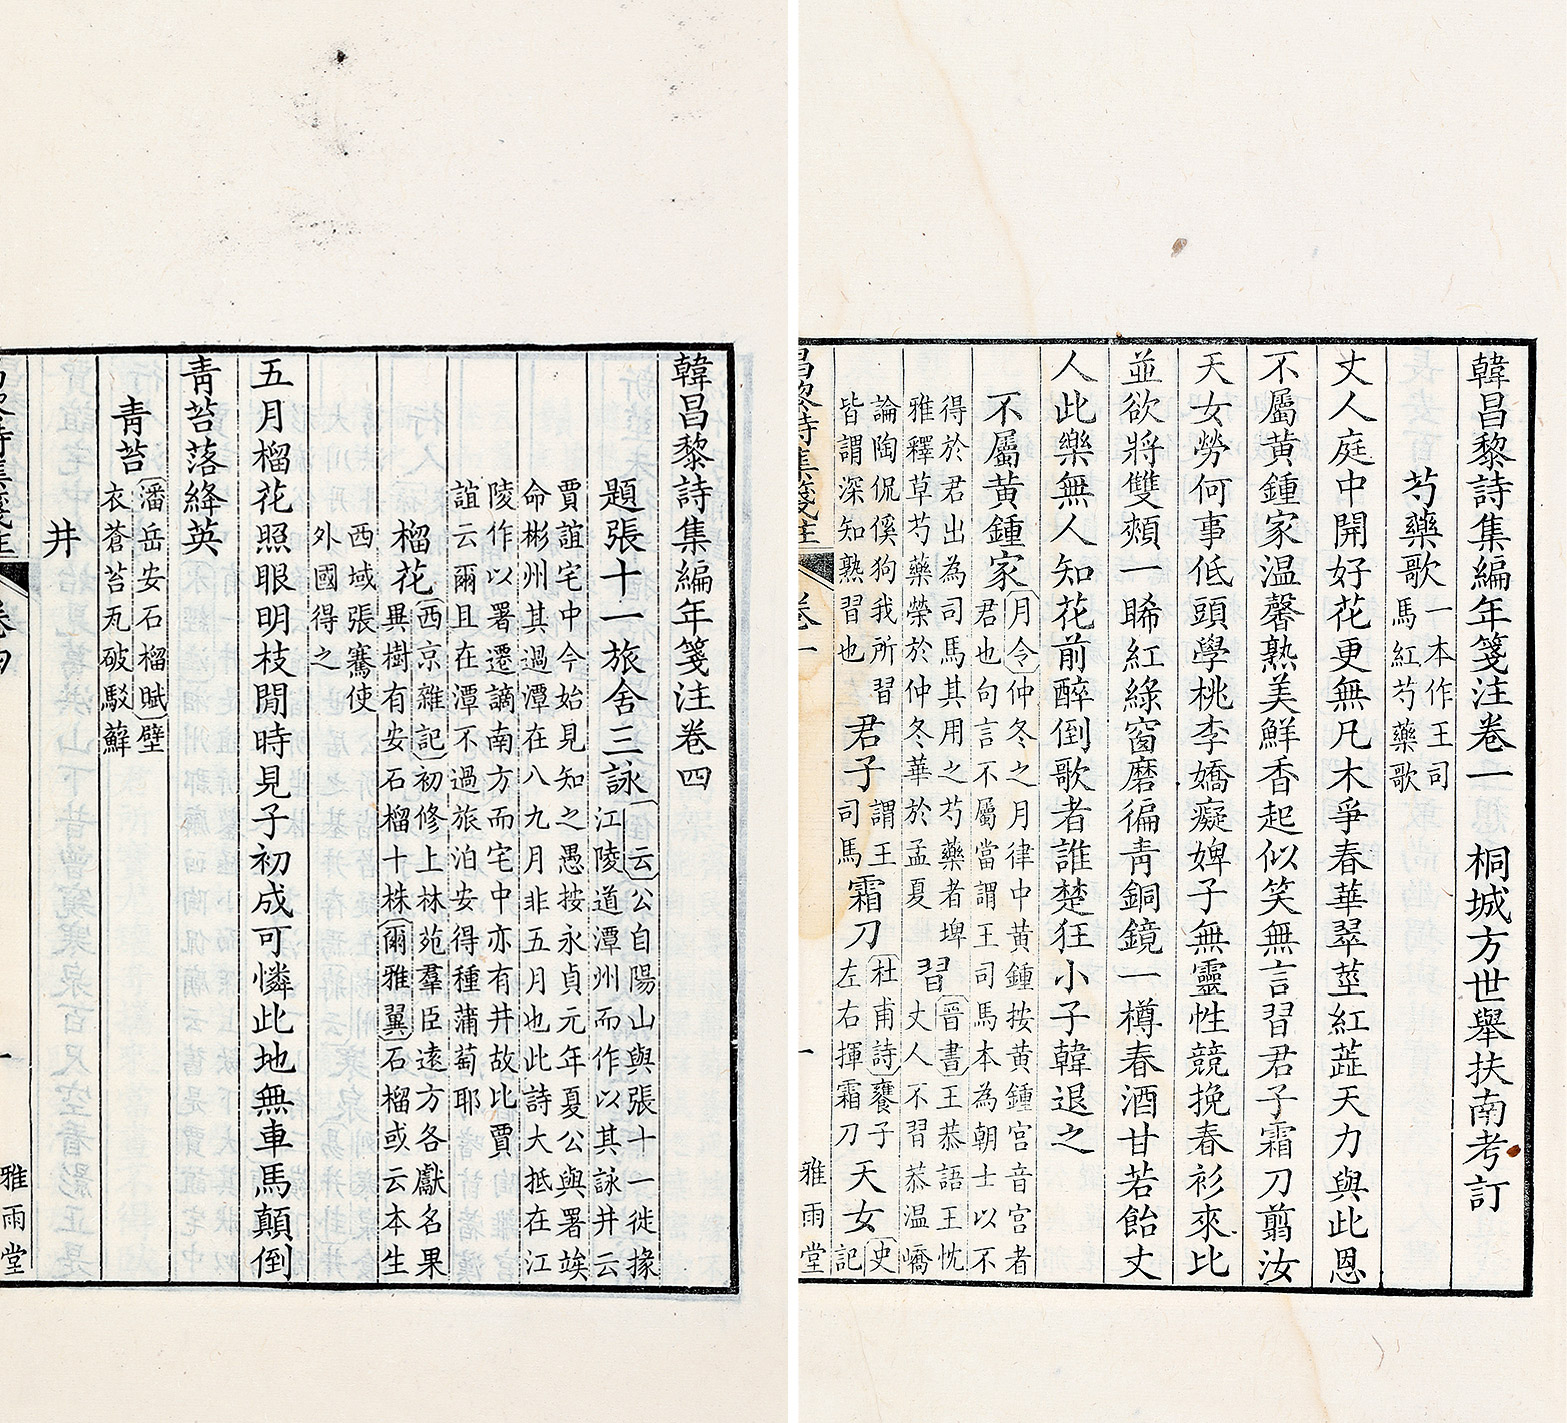 韓昌黎詩集編年箋注卷一　桐城方世舉扶南考訂
芍藥歌一本作王司
馬紅芍藥歌
丈人庭中開好花更無凡木爭春華翠莖紅蘃天力與此恩
不屬黃鍾家温馨熟美鮮香起似笑無言習君子霜刀翦汝
天女勞何事低頭學桃李嬌癡婢子無靈性競挽春衫來比
並欲將雙頰一睎紅綠窗磨徧青銅鏡一樽春酒甘若飴丈
人此樂無人知花前醉倒歌者誰楚狂小子韓退之
不屬黃鍾家月令仲冬之月律中黃鍾按黃鍾宮音宮者
君也句言不屬當謂王司馬本為朝士以不
得於君出為司馬其用之芍藥者埤
雅釋草芍藥榮於仲冬華於孟夏
習晉書王恭語王忱
丈人不習恭温嶠
論陶侃傒狗我所習
皆謂深知熟習也
君子謂王
司馬
霜刀杜甫詩饔子
左右揮霜刀
天女史
記
昌黎詩集箋注
卷一
一
雅雨堂
韓昌黎詩集編年箋注卷四
題張十一旅舍三詠云公自陽山與張十一徙掾
江陵道潭州而作以其詠井云
賈誼宅中今始見知之愚按永貞元年夏公與署竢
命彬州其過潭在八九月非五月也此詩大抵在江
陵作以署遷謫南方而宅中亦有井故比賈
誼云爾且在潭不過旅泊安得種蒲萄耶
榴花西京雜記初修上林苑羣臣遠方各獻名果
異樹有安石榴十株爾雅翼石榴或云本生
西域張騫使
外國得之
五月榴花照眼明枝間時見子初成可憐此地無車馬顛倒
青苔落絳英
青苔潘岳安石榴賦壁
衣蒼苔瓦破駁蘚
井
昌黎詩集箋注
卷四
一
雅雨堂